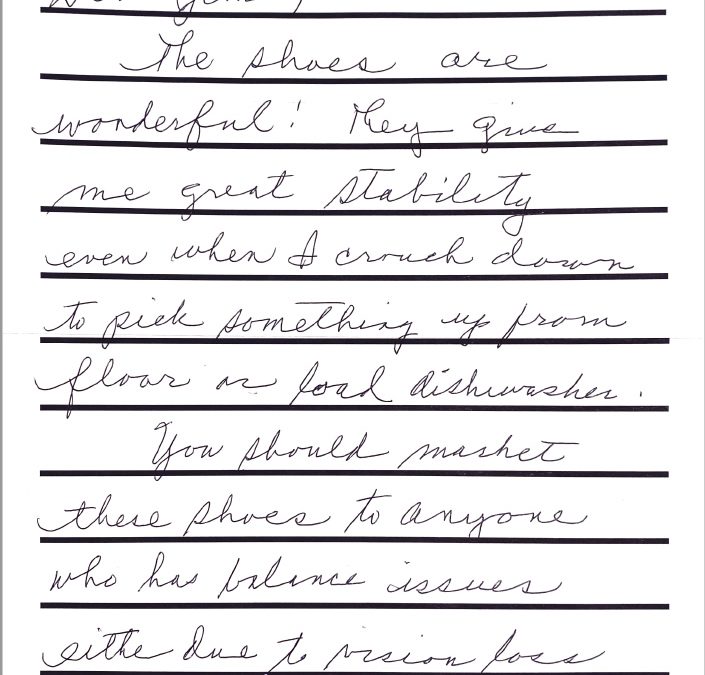 The shoes are
wonderful! They give
me great stability
even when I crouch down
to pick something up from
floor or load dishwasher.
You should market
these shoes to anyone
who has balance issues
eithe due to vision loss